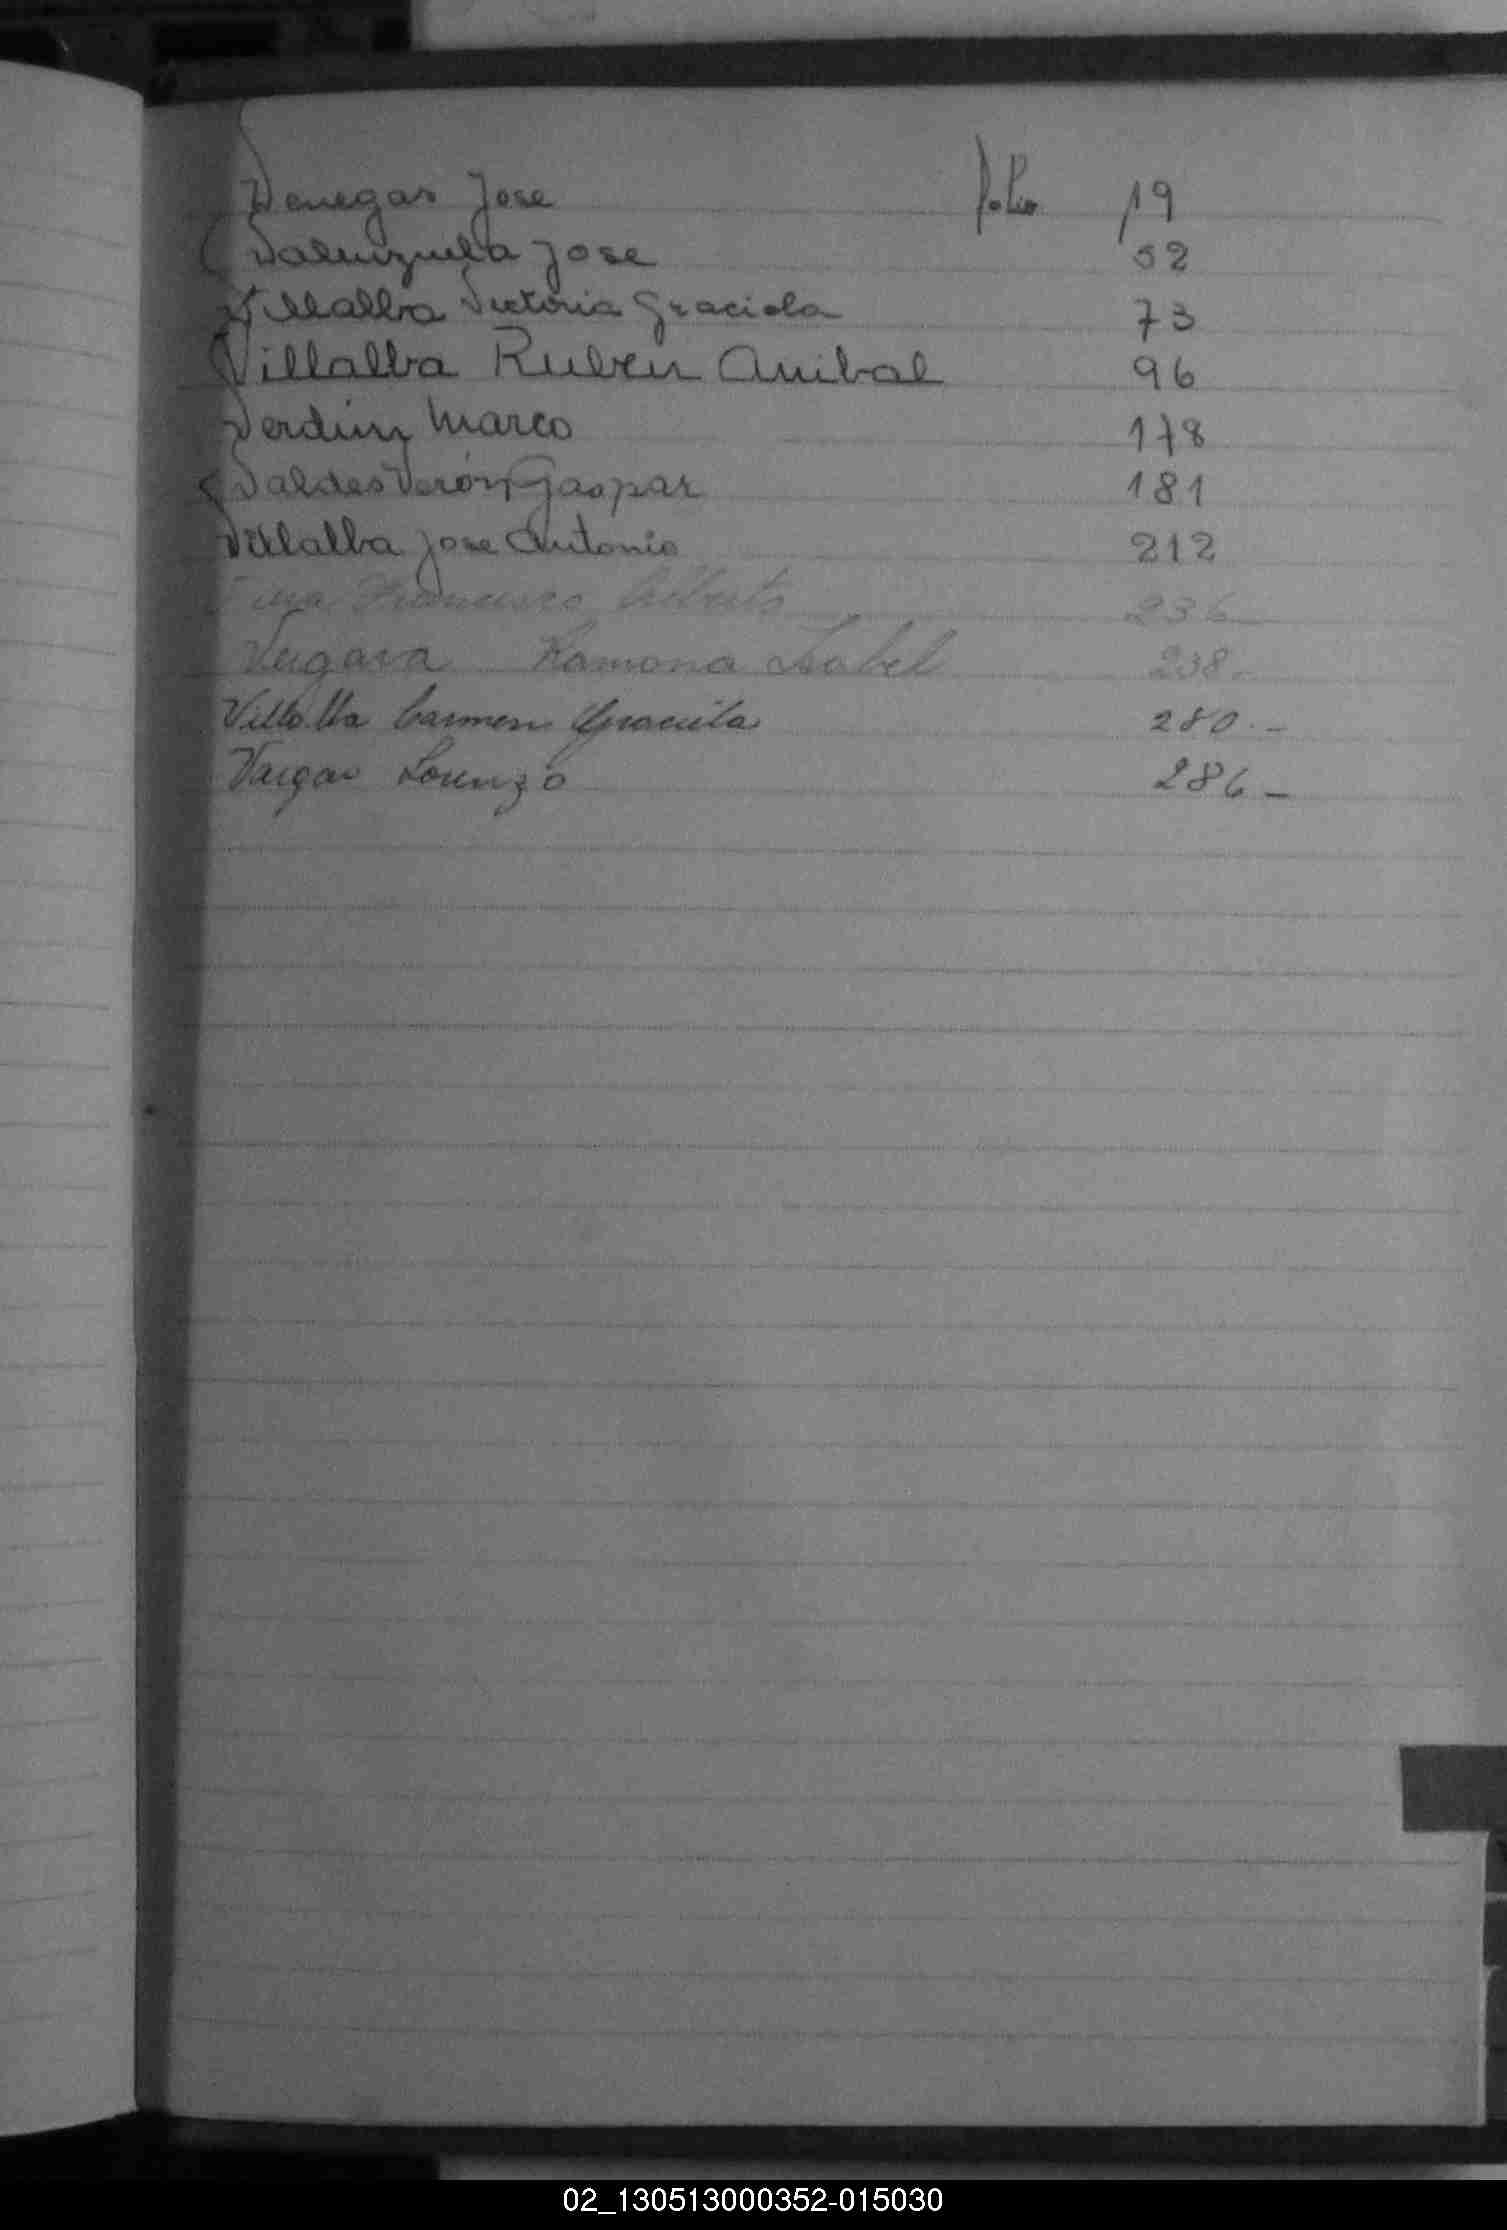 Venegas Jose Folio 19
Valenzuela Jose 52
Villalba Victoria Graciela 73
Villalba Ruben Anibal 96
Verdun Marco 178
Valdes Verón Gaspar 181
Villalba Jose Antonio 212
Francisco Alberto 236
Vergara Ramona Isabel 238.-
Villalba Carmen Graciela 280.-
Vargas Lorenzo 286-
02_130513000352-015030